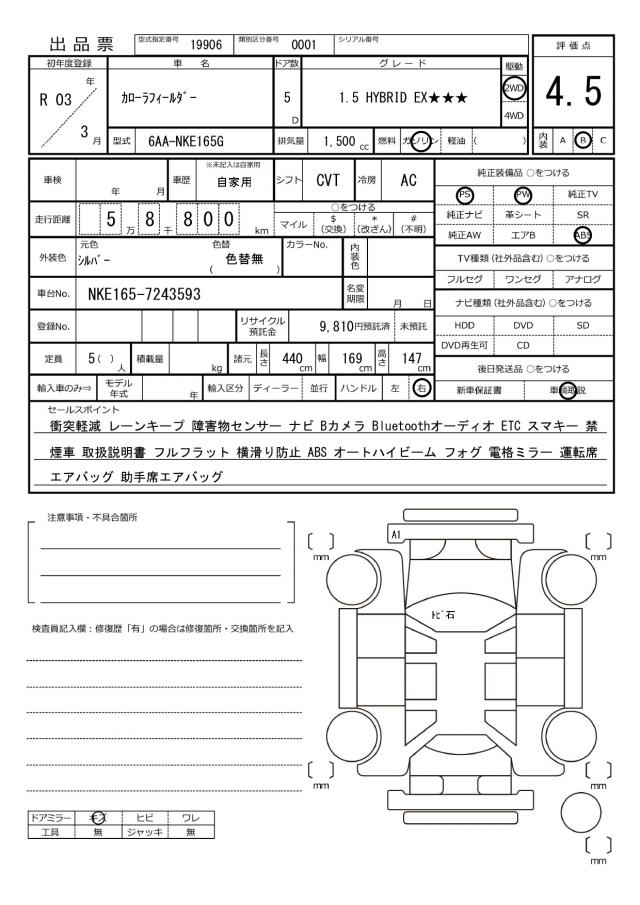 出品票 型式指定番号 19906 類別区分番号 0001 シリアル番号
評価点
4.5
内装 A B C
初年度登録 車名 ドア数 グレード 駆動
R 03 年 3 月
カローラフィールダー 5 D 1.5 HYBRID EX★★★ 2WD
4WD
型式 6AA-NKE165G 排気量 1,500 cc 燃料 ガソリン 軽油 ( )
車検 年 月 車歴 ※未記入は自家用 自家用 シフト CVT 冷房 AC
走行距離 5 万 8 千 8 0 0 km
○をつける
マイル $(交換) *(改ざん) #(不明)
外装色 元色 シルバー 色替 ( 色替無 ) カラーNo. 内装色
車台No. NKE165-7243593 名変期限 月 日
登録No. リサイクル預託金 9,810円預託済 未預託
定員 5( ) 人 積載量 kg 諸元 長さ 440 cm 幅 169 cm 高さ 147 cm
輸入車のみ⇒ モデル年式 年 輸入区分 ディーラー 並行 ハンドル 左 右
純正装備品 ○をつける
PS PW 純正TV
純正ナビ 革シート SR
純正AW エアB ABS
TV種類(社外品含む)○をつける
フルセグ ワンセグ アナログ
ナビ種類(社外品含む)○をつける
HDD DVD SD
DVD再生可 CD
後日発送品 ○をつける
新車保証書 車輌取説
セールスポイント
衝突軽減 レーンキープ 障害物センサー ナビ Bカメラ Bluetoothオーディオ ETC スマキー 禁
煙車 取扱説明書 フルフラット 横滑り防止 ABS オートハイビーム フォグ 電格ミラー 運転席
エアバッグ 助手席エアバッグ
注意事項・不具合箇所
検査員記入欄：修復歴「有」の場合は修復箇所・交換箇所を記入
A1
トビ石
mm
mm
mm
mm
mm
ドアミラー キズ ヒビ ワレ
工具 無 ジャッキ 無